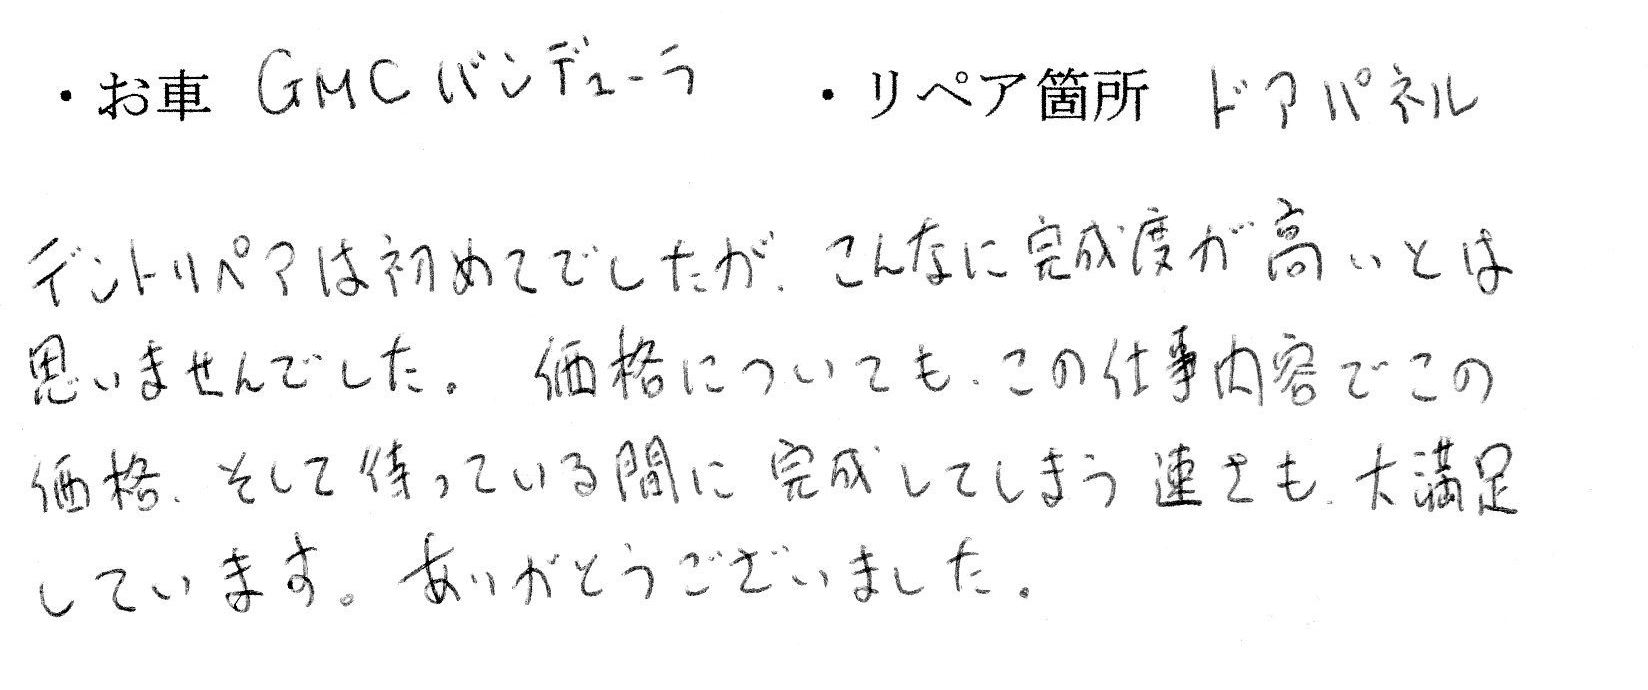 ・お車 GMCバンデューラ ・リペア箇所 ドアパネル
デントリペアは初めてでしたが、こんなに完成度が高いとは
思いませんでした。価格についても、この仕事内容でこの
価格、そして待っている間に完成してしまう速さも、大満足
しています。ありがとうございました。